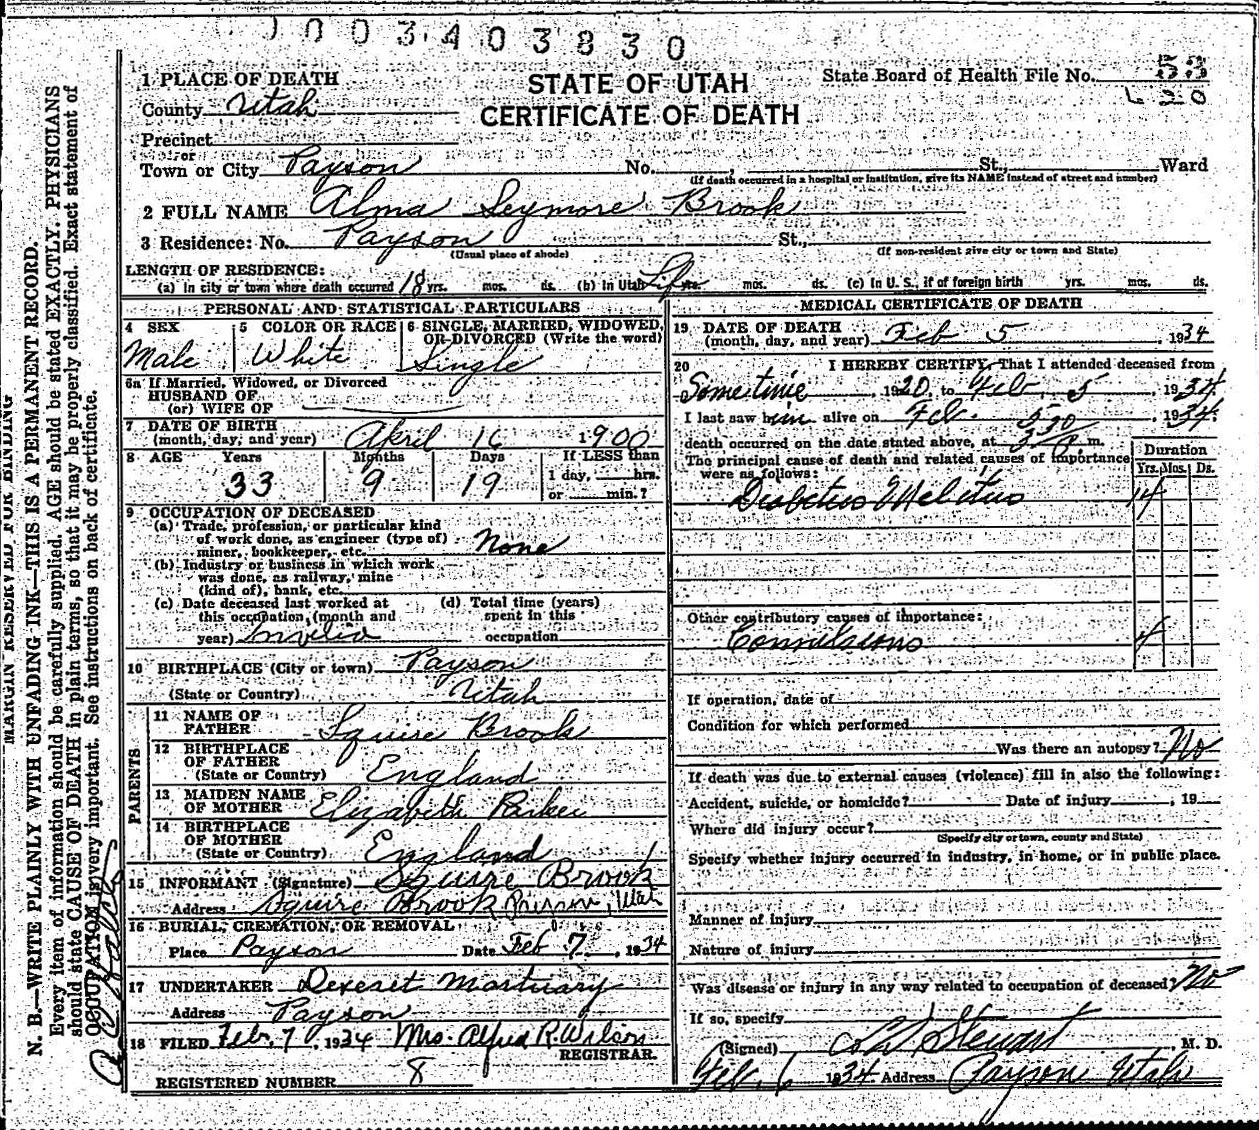 1003403830
1 PLACE OF DEATH
County Utah
STATE OF UTAH
CERTIFICATE OF DEATH
State Board of Health File No. 53
620
Precinct
or
Town or City Payson No. St., Ward
(If death occurred in a hospital or institution, give its NAME instead of street and number)
2 FULL NAME Alma Seymore Brook
3 Residence: No. Payson St.,
(Usual place of abode) (If non-resident give city or town and State)
LENGTH OF RESIDENCE:
(a) In city or town where death occurred 18 yrs. mos. ds. (b) In Utah Life yrs. mos. ds. (c) In U. S., if of foreign birth yrs. mos. ds.
PERSONAL AND STATISTICAL PARTICULARS
4 SEX Male
5 COLOR OR RACE White
6 SINGLE, MARRIED, WIDOWED, OR DIVORCED (Write the word) Single
6a If Married, Widowed, or Divorced
HUSBAND OF
(or) WIFE OF
7 DATE OF BIRTH
(month, day, and year) April 16 1900
8 AGE Years Months Days If LESS than
33 9 19 1 day, hrs.
or min.?
9 OCCUPATION OF DECEASED
(a) Trade, profession, or particular kind
of work done, as engineer (type of)
miner, bookkeeper, etc. None
(b) Industry or business in which work
was done, as railway, mine
(kind of), bank, etc.
(c) Date deceased last worked at
this occupation, (month and
year) Invilid
(d) Total time (years)
spent in this
occupation
10 BIRTHPLACE (City or town) Payson
(State or Country) Utah
PARENTS
11 NAME OF
FATHER Squire Brook
12 BIRTHPLACE
OF FATHER
(State or Country) England
13 MAIDEN NAME
OF MOTHER Elizabeth Parker
14 BIRTHPLACE
OF MOTHER
(State or Country) England
15 INFORMANT (Signature) Squire Brook
Address Squire Brook Payson, Utah
16 BURIAL, CREMATION, OR REMOVAL
Place Payson Date Feb 7 1934
17 UNDERTAKER Dexeret Mortuary
Address Payson
18 FILED Feb. 7, 1934 Mrs. Alfred R. Wilson
REGISTRAR.
REGISTERED NUMBER 8
MEDICAL CERTIFICATE OF DEATH
19 DATE OF DEATH
(month, day, and year) Feb 5, 1934
20 I HEREBY CERTIFY, That I attended deceased from
Sometime, 1920, to Feb. 5, 1934.
I last saw him alive on Feb. 5, 1934.
death occurred on the date stated above, at m.
The principal cause of death and related causes of importance
were as follows:
Duration
Yrs. Mos. Ds.
Diabetus Melitus 14
Other contributory causes of importance:
Convulsions 4
If operation, date of
Condition for which performed
Was there an autopsy? No
If death was due to external causes (violence) fill in also the following:
Accident, suicide, or homicide? Date of injury , 19
Where did injury occur?
(Specify city or town, county and State)
Specify whether injury occurred in industry, in home, or in public place.
Manner of injury
Nature of injury
Was disease or injury in any way related to occupation of deceased? No
If so, specify
(Signed) Stewart, M. D.
Feb. 6 1934 Address Payson Utah
MARGIN RESERVED FOR BINDING
N. B.—WRITE PLAINLY WITH UNFADING INK—THIS IS A PERMANENT RECORD.
Every item of information should be carefully supplied. AGE should be stated EXACTLY. PHYSICIANS
should state CAUSE OF DEATH in plain terms, so that it may be properly classified. Exact statement of
OCCUPATION is very important. See instructions on back of certificate.